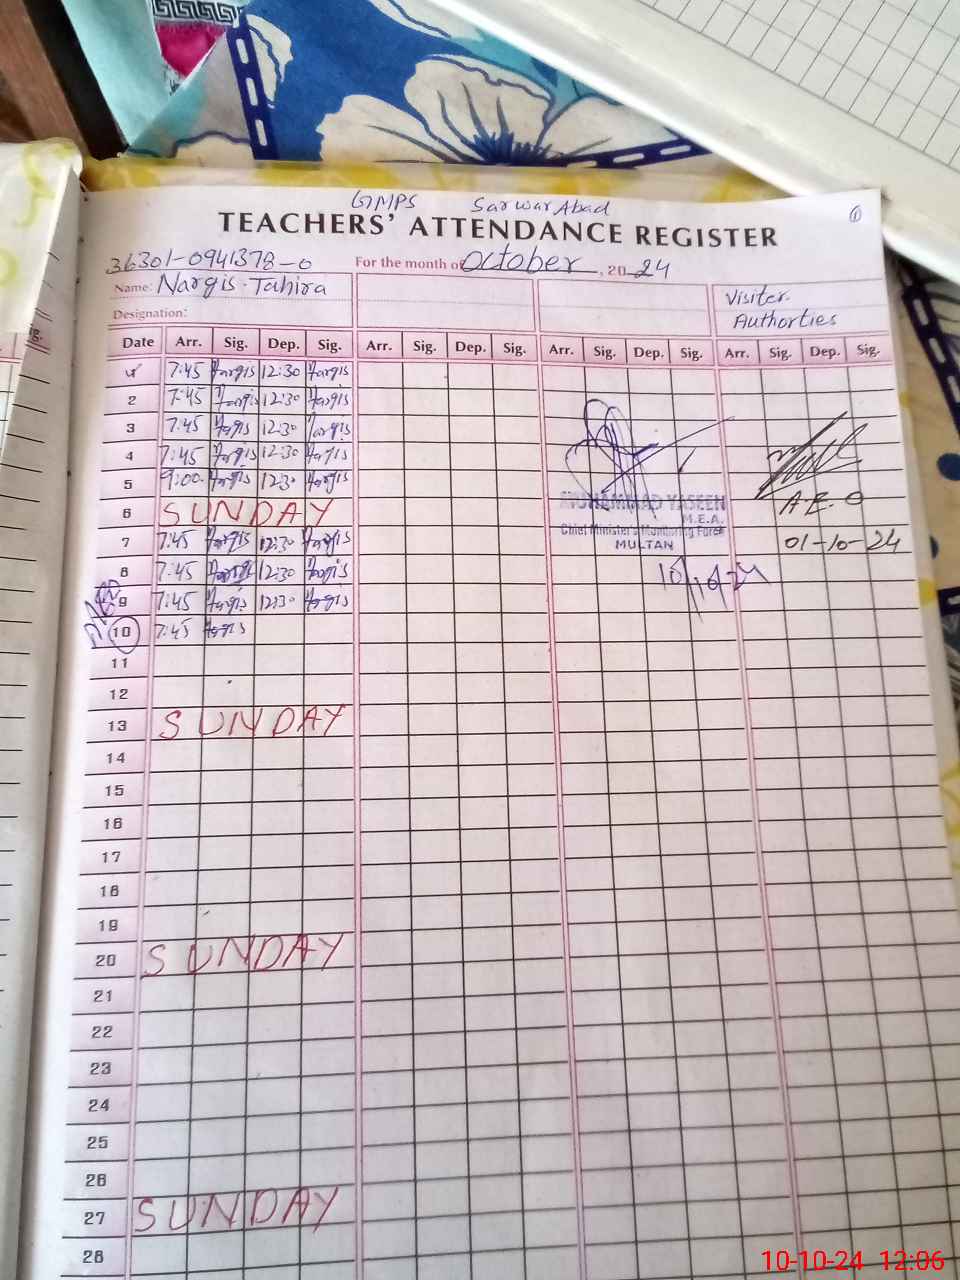 GMPS Sarwar Abad
6
TEACHERS' ATTENDANCE REGISTER
36301-0941378-0 For the month of October, 2024
Name: Nargis Tahira
Visiter.
Designation:
Authorties
Date Arr. Sig. Dep. Sig. Arr. Sig. Dep. Sig. Arr. Sig. Dep. Sig. Arr. Sig. Dep. Sig.
1 7:45 Nargis 12:30 Nargis
2 7:45 Nargis 12:30 Nargis
3 7:45 Nargis 12:30 Nargis
4 7:45 Nargis 12:30 Nargis
5 9:00 Nargis 12:30 Nargis
6 SUNDAY
7 7:45 Nargis 12:30 Nargis
8 7:45 Nargis 12:30 Nargis
9 7:45 Nargis 12:30 Nargis
10 7:45 Nargis
MUHAMMAD YASEEN
M.E.A.
Chief Minister's Monitoring Force
MULTAN
10/10-24
A.E.O
01-10-24
11
12
13 SUNDAY
14
15
16
17
18
19
20 SUNDAY
21
22
23
24
25
26
27 SUNDAY
28
ig.
10-10-24 12:06